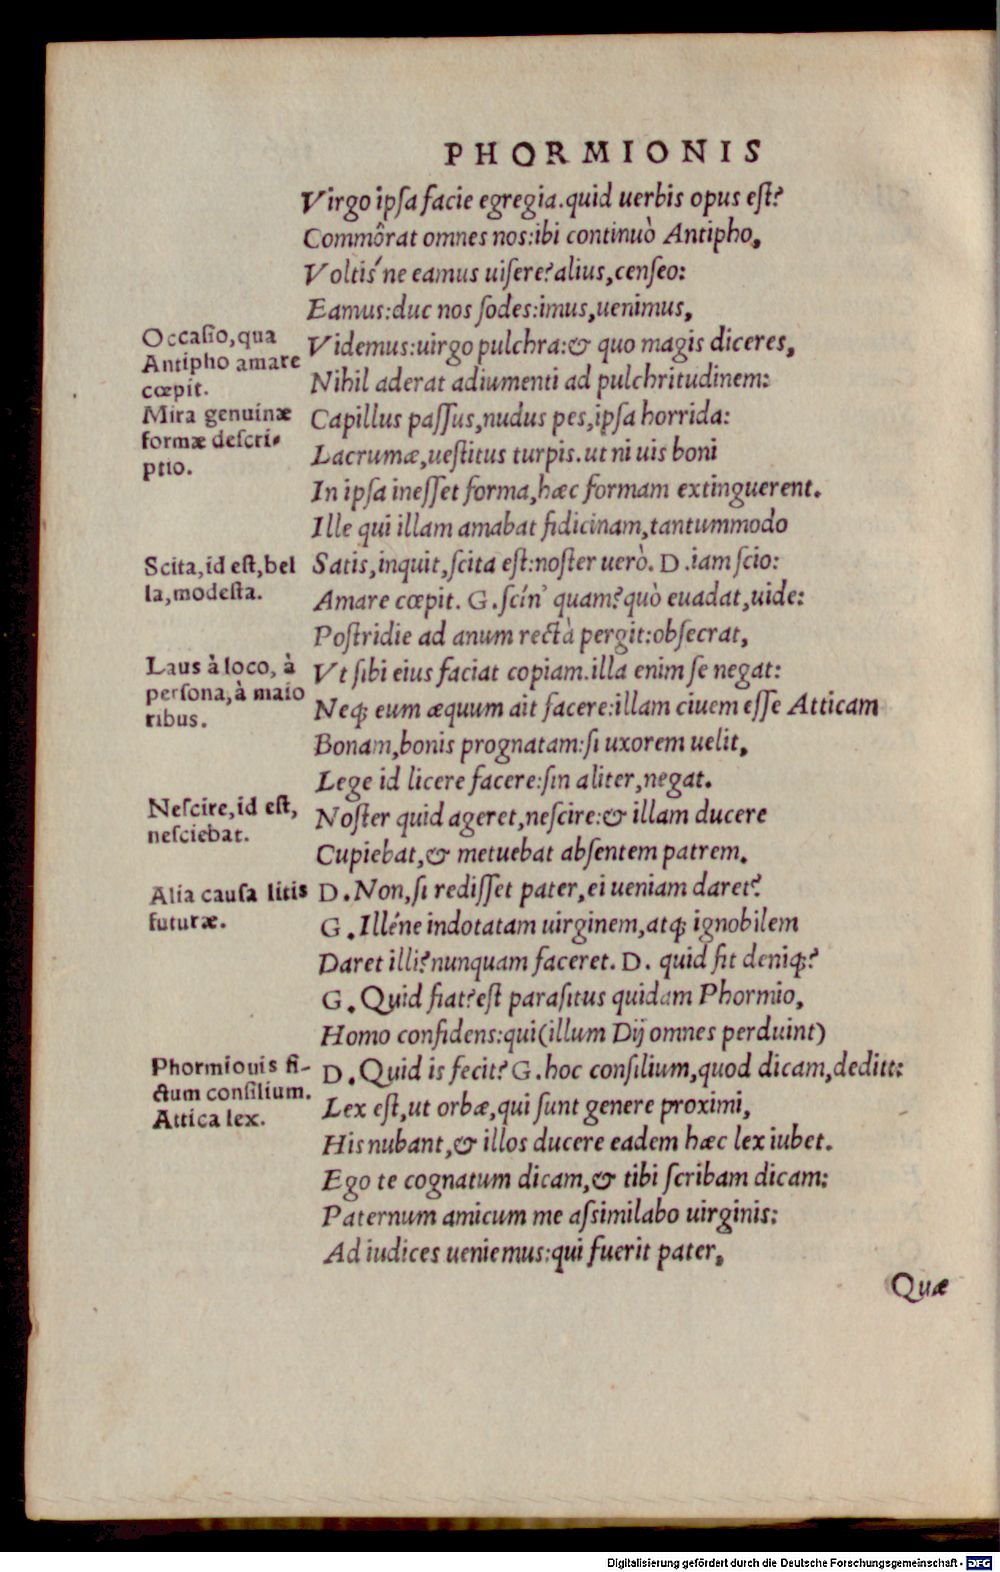 PHORMIONIS
Virgo ipſa facie egregia.quid uerbis opus eſt?
Commôrat omnes nos:ibi continuò Antipho,
Voltis'ne eamus uiſere?alius,cenſeo:
Eamus:duc nos ſodes:imus,uenimus,
Occaſio,qua
Antipho amare
cœpit.
Videmus:uirgo pulchra:& quo magis diceres,
Nihil aderat adiumenti ad pulchritudinem:
Mira genuinæ
formæ deſcri-
ptio.
Capillus paſſus,nudus pes,ipſa horrida:
Lacrumæ,ueſtitus turpis.ut ni uis boni
In ipſa ineſſet forma,hæc formam extinguerent.
Ille qui illam amabat fidicinam,tantummodo
Scita,id eſt,bel
la,modeſta.
Satis,inquit,ſcita eſt:noſter uerò. D.iam ſcio:
Amare cœpit. G.ſcín' quam?quò euadat,uide:
Poſtridie ad anum rectà pergit:obſecrat,
Laus à loco, à
perſona,à maio
ribus.
Vt ſibi eius faciat copiam.illa enim ſe negat:
Neq; eum æquum ait facere:illam ciuem eſſe Atticam
Bonam,bonis prognatam:ſi uxorem uelit,
Lege id licere facere:ſin aliter,negat.
Neſcire,id eſt,
neſciebat.
Noſter quid ageret,neſcire:& illam ducere
Cupiebat,& metuebat abſentem patrem.
Alia cauſa litis
futuræ.
D.Non,ſi rediſſet pater,ei ueniam daret?
G.Illéne indotatam uirginem,atq; ignobilem
Daret illi?nunquam faceret. D. quid fit deniq;?
G.Quid fiat?eſt paraſitus quidam Phormio,
Homo confidens:qui(illum Dij omnes perduint)
Phormionis fi-
ctum conſilium.
Attica lex.
D.Quid is fecit? G.hoc conſilium,quod dicam,dedit:
Lex eſt,ut orbæ,qui ſunt genere proximi,
His nubant,& illos ducere eadem hæc lex iubet.
Ego te cognatum dicam,& tibi ſcribam dicam:
Paternum amicum me aſsimilabo uirginis:
Ad iudices ueniemus:qui fuerit pater,
Quæ
Digitalisierung gefördert durch die Deutsche Forschungsgemeinschaft - DFG